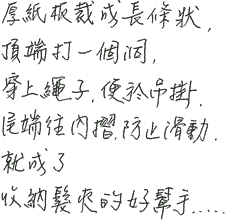 厚紙板裁成長條狀,
頂端打一個洞,
穿上繩子,便於吊掛.
尾端往內摺,防止滑動.
就成了
收納髮夾的好幫手.....